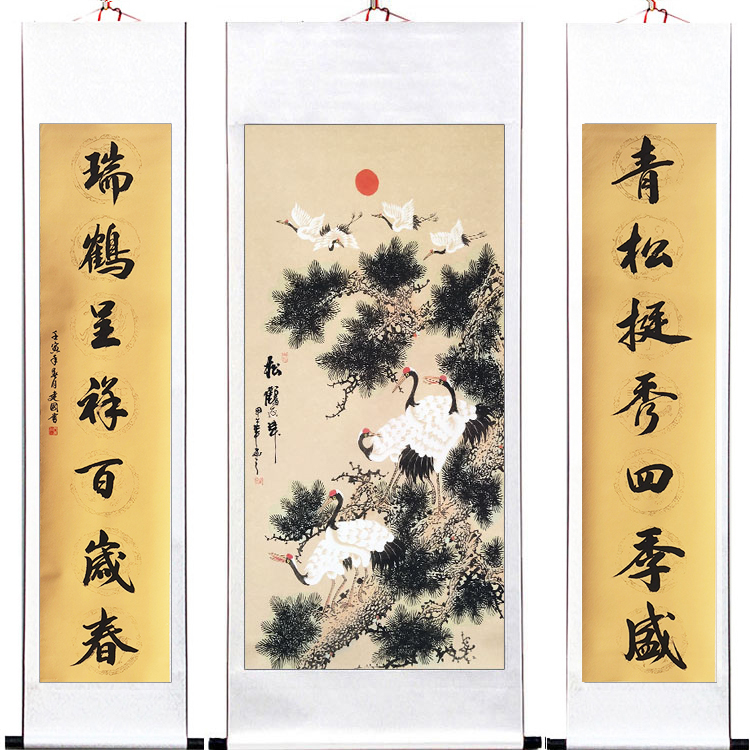 青松挺秀四季盛
瑞鹤呈祥百歲春
壬寅年春月建國書
松鶴延年